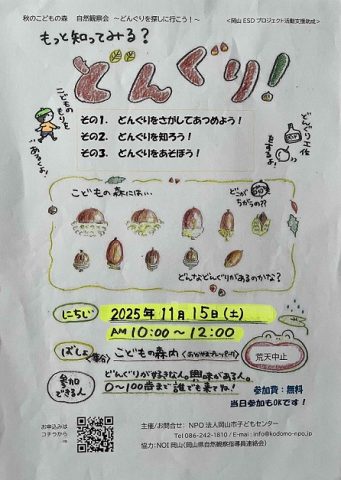 秋のこどもの森　自然観察会　～どんぐりを探しに行こう！～　＜岡山ESDプロジェクト活動支援助成＞
もっと知ってみる？
どんぐり！
その1.　どんぐりをさがしてあつめよう！
その2.　どんぐりを知ろう！
その3.　どんぐりをあそぼう！
こどもの森には…
どこがちがうの??
どんなどんぐりがあるのかな？
にちじ　2025年11月15日(土)
AM 10:00～12:00
ばしょ(集合)　こどもの森内
荒天中止
参加できる人
どんぐりが好きな人。興味がある人。
0～100歳まで誰でも来てね！
参加費：無料
当日参加もOKです！
お申込みは
コチラから
⇒
主催/お問合せ：NPO法人岡山市子どもセンター
Tel 086-242-1810 / E-mai：info@kodomo-npo.jp
協力：NOI岡山(岡山県自然観察指導員連絡会)